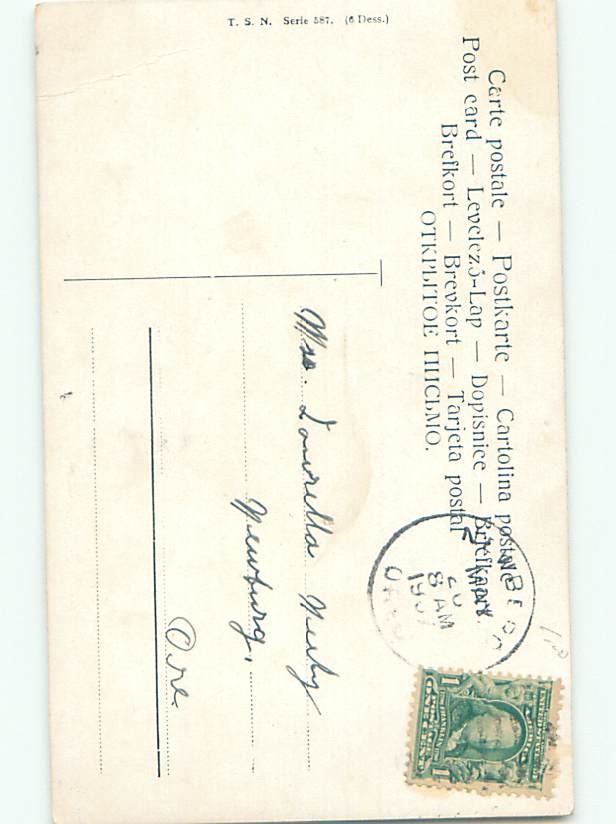 T. S. N. Serie 587. (6 Dess.)
Carte postale — Postkarte — Cartolina postale
Post card — Levelező-Lap — Dopisnice — Briefkaart.
Brefkort — Brevkort — Tarjeta postal
ОТКРЫТОЕ ПИСЬМО.
MAY
20
8 AM
1907
OREG
1 1
Mrs.
Newburg,
Ore.